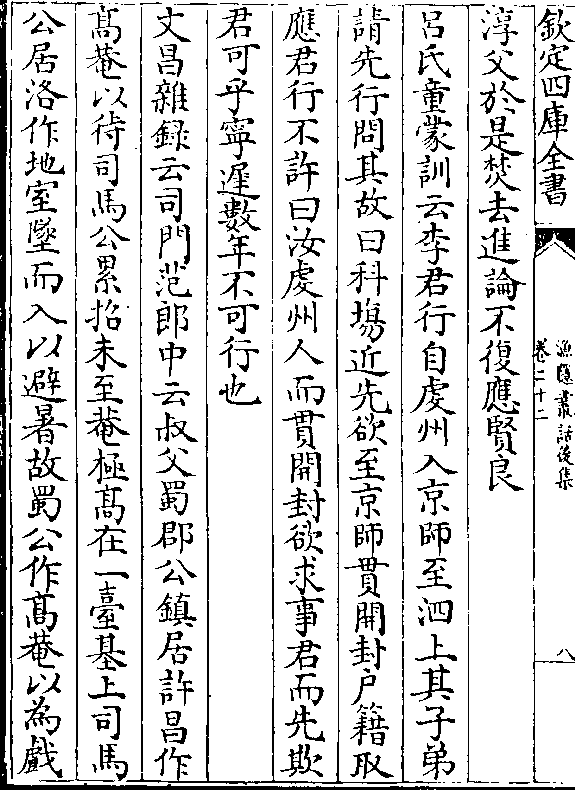 欽定四庫全書
漁隱叢話後集
卷二十二
八
淳父於是焚去進論不復應賢良
呂氏童蒙訓云李君行自虔州入京師至泗上其子弟
請先行問其故曰科塲近先欲至京師貫開封户籍取
應君行不許曰汝虔州人而貫開封欲求事君而先欺
君可乎寧遲數年不可行也
文昌雜録云司門范郎中云叔父蜀郡公鎮居許昌作
髙菴以待司馬公累招未至菴極髙在一臺基上司馬
公居洛作地室墜而入以避暑故蜀公作髙菴以為戲